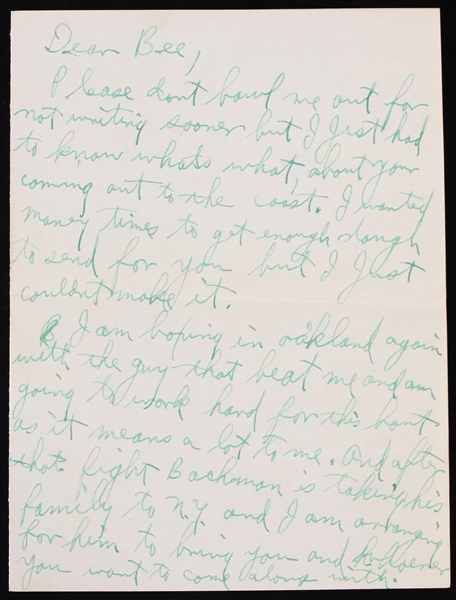 Dear Bee,
Please don't bawl me out for
not writing sooner but I Just had
to know whats what, about your
coming out to the coast. I wanted
many times to get enough dough
to send for you but I Just
couldnt make it.
I am boxing in oakland again
with the guy that beat me and am
going to work hard for this bout
as it means a lot to me. And after
that fight Bachman is taking his
family to N.Y. and I am arranging
for him to bring you and whoever
you want to come along with.